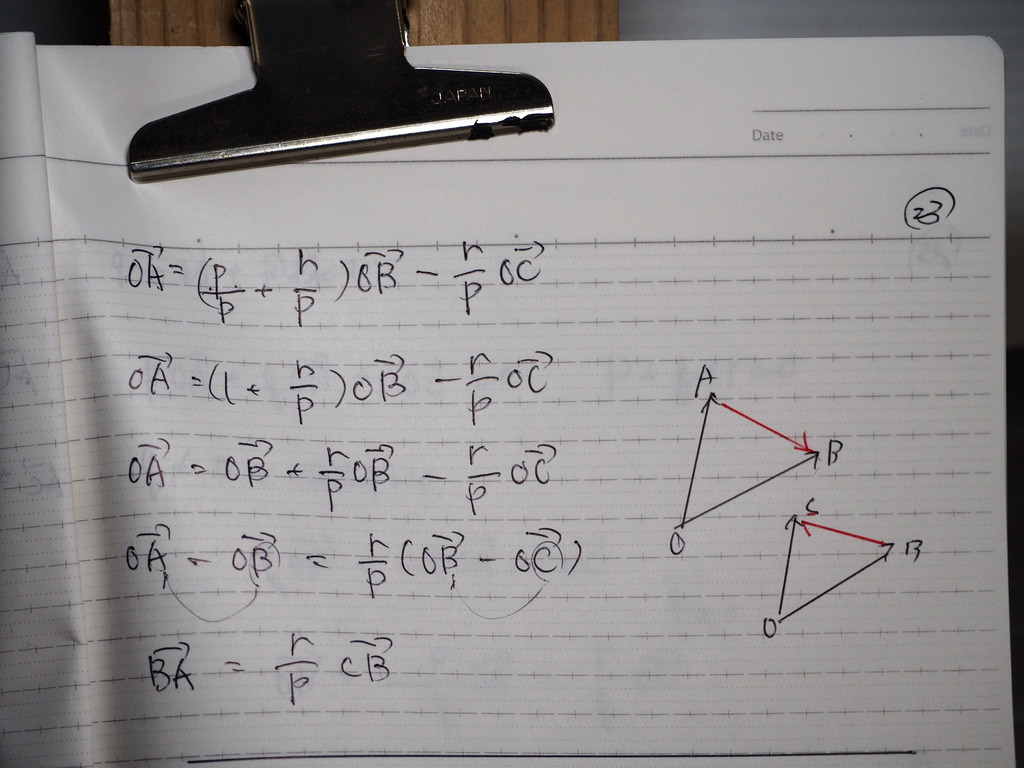 JAPAN
Date
23
\overrightarrow{OA} = (\frac{p}{p} + \frac{r}{p})\overrightarrow{OB} - \frac{r}{p}\overrightarrow{OC}
\overrightarrow{OA} = (1 + \frac{r}{p})\overrightarrow{OB} - \frac{r}{p}\overrightarrow{OC}
\overrightarrow{OA} = \overrightarrow{OB} + \frac{r}{p}\overrightarrow{OB} - \frac{r}{p}\overrightarrow{OC}
\overrightarrow{OA} - \overrightarrow{OB} = \frac{r}{p}(\overrightarrow{OB} - \overrightarrow{OC})
\overrightarrow{BA} = \frac{r}{p}\overrightarrow{CB}
A
B
O
C
B
O